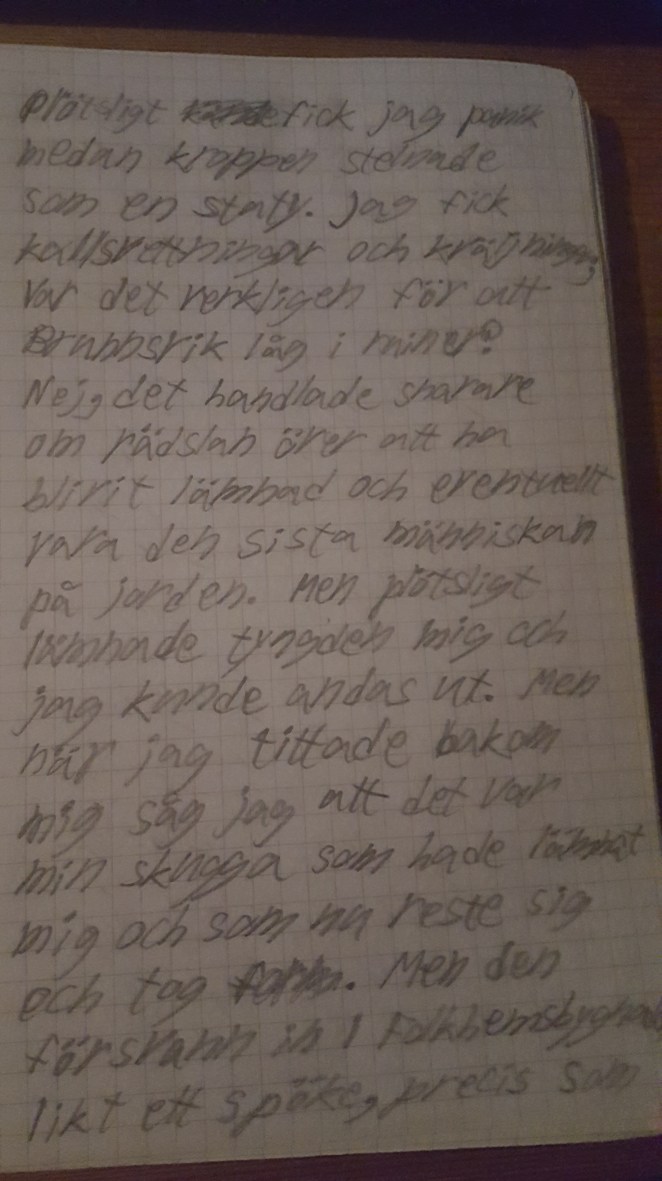 plötsligt fick jag panik
medan kroppen stelnade
som en staty. Jag fick
kallsvettningar och
Var det verkligen för att
Brunnsvik låg i ruiner?
Nej, det handlade snarare
om rädslan över att ha
blivit lämnad och eventuellt
vara den sista människan
på jorden. Men plötsligt
lämnade tyngden mig och
jag kunde andas ut. Men
när jag tittade bakom
mig såg jag att det var
min skugga som hade lämnat
mig och som nu reste sig
och tog form. Men den
försvann in i
likt ett spöke, precis som